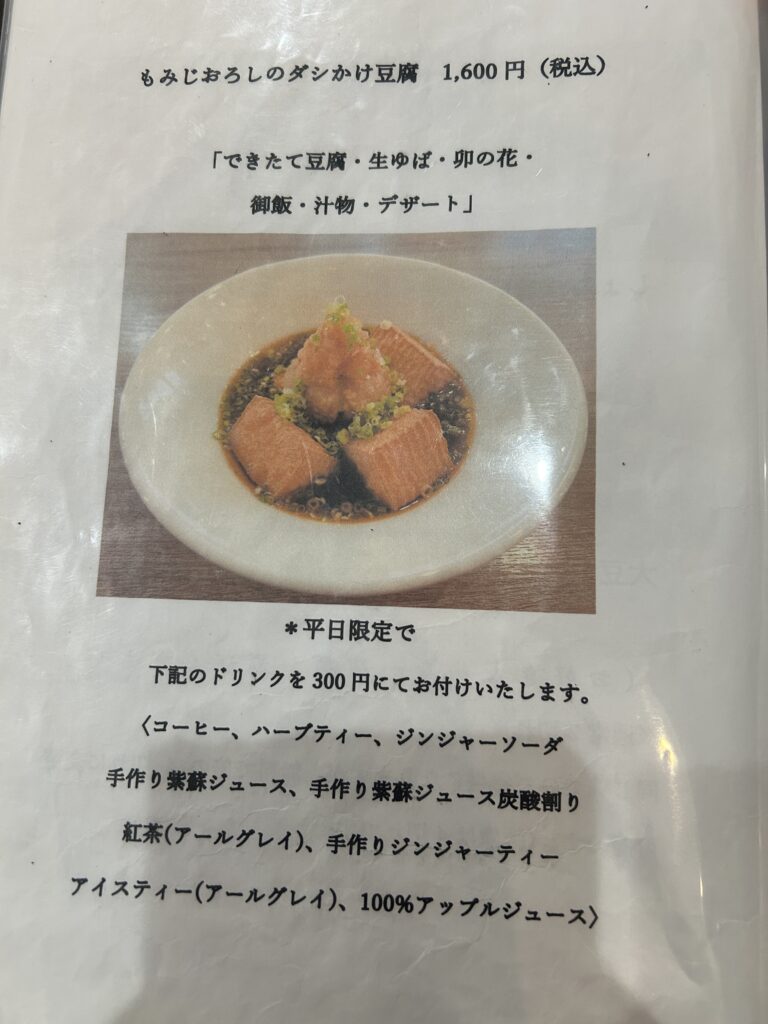 もみじおろしのダシかけ豆腐　1,600円（税込）
「できたて豆腐・生ゆば・卯の花・
御飯・汁物・デザート」
＊平日限定で
下記のドリンクを300円にてお付けいたします。
〈コーヒー、ハーブティー、ジンジャーソーダ
手作り紫蘇ジュース、手作り紫蘇ジュース炭酸割り
紅茶(アールグレイ)、手作りジンジャーティー
アイスティー(アールグレイ)、100%アップルジュース〉